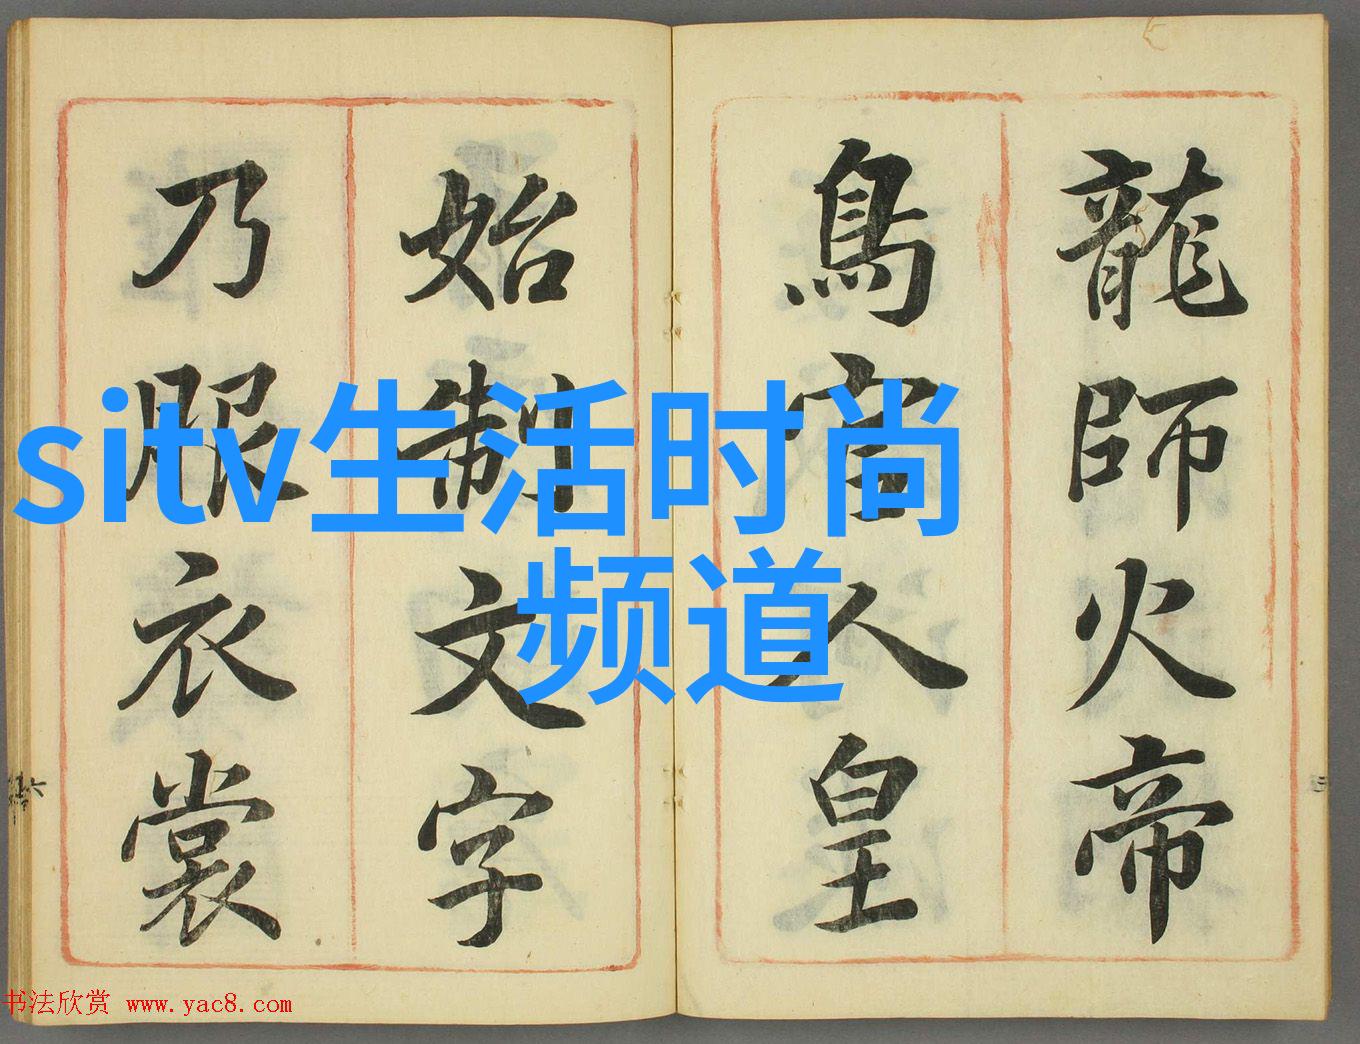 龍師火帝
鳥官人皇
始制文字
乃服衣裳
sitv生活时尚
频道
书法欣赏 www.yac8.com